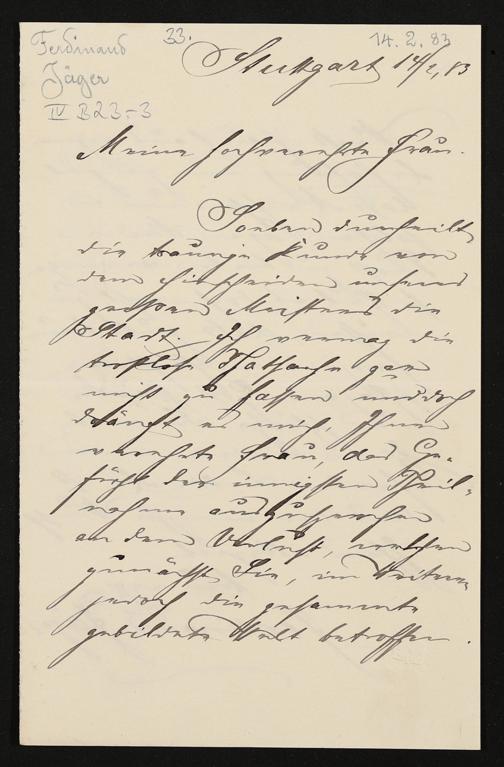 Ferdinand
Jäger
IV B 23-3
33.
14. 2. 83
Stuttgart 14/2, 83
Meine hochverehrte Frau.
Soeben durcheilt
die traurige Kunde von
dem Hinscheiden unseres
großen Meisters die
Stadt. Ich vermag die
trostlose Thatsache gar
nicht zu fassen und doch
drängt es mich, Ihnen
verehrte Frau, das Ge-
fühl der innigsten Theil-
nahme auszusprechen
an dem Verlust, welchen
zunächst Sie, im Weiteren
jedoch die gesammte
gebildete Welt betroffen.